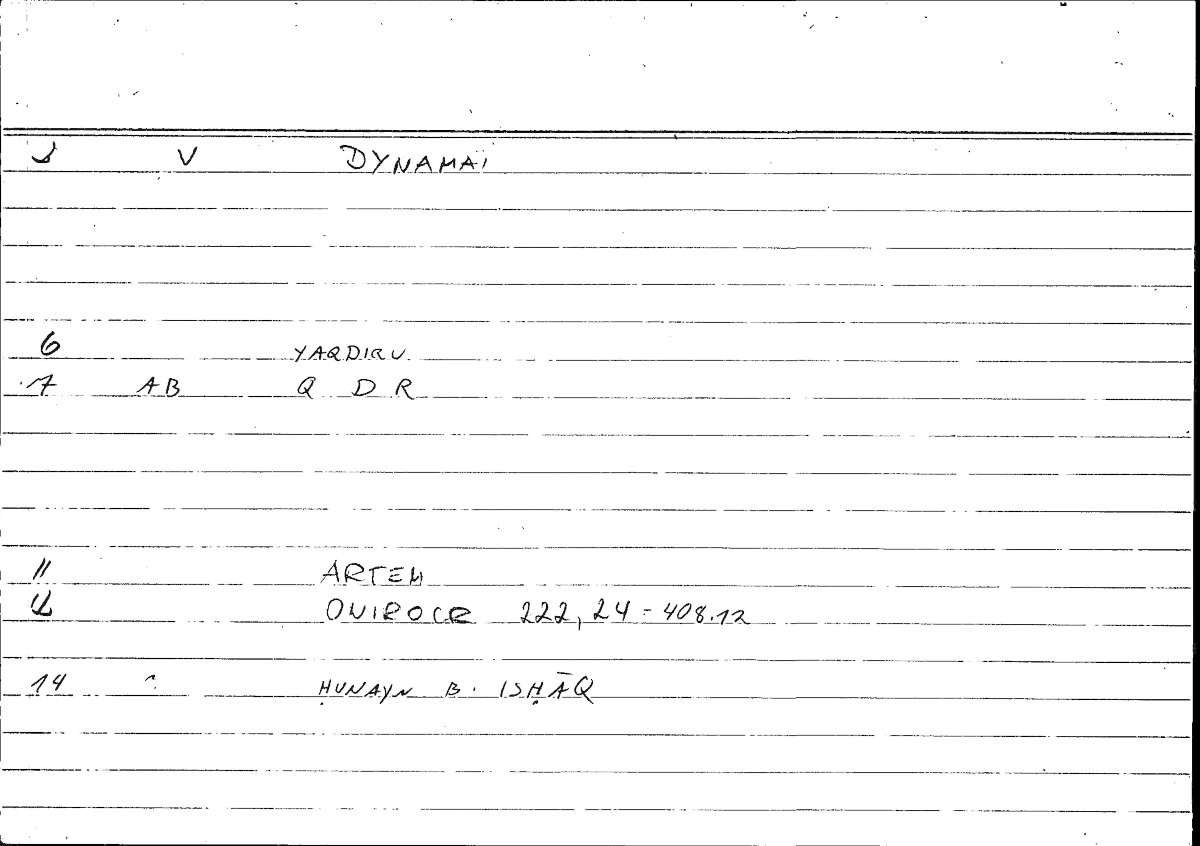 V DYNAMAI
6 YAQDIRU
7 AB Q D R
11 ARTEM
12 ONIROCR 222,24=408.12
14 ḤUNAYN B. ISḤĀQ